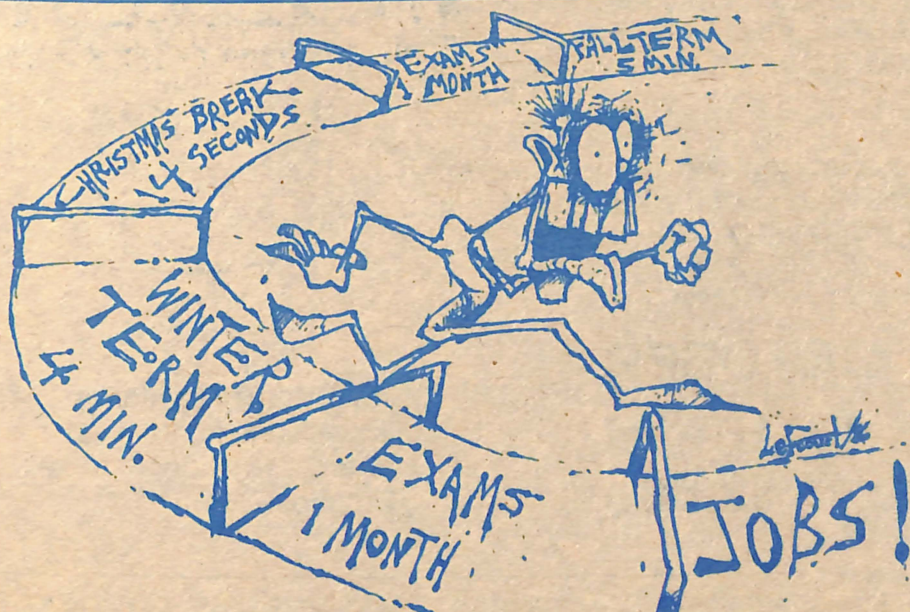 FALL TERM
5 MIN.
EXAMS
1 MONTH
CHRISTMAS BREAK
14 SECONDS
WINTER
TERM
4 MIN.
EXAMS
1 MONTH
JOBS!